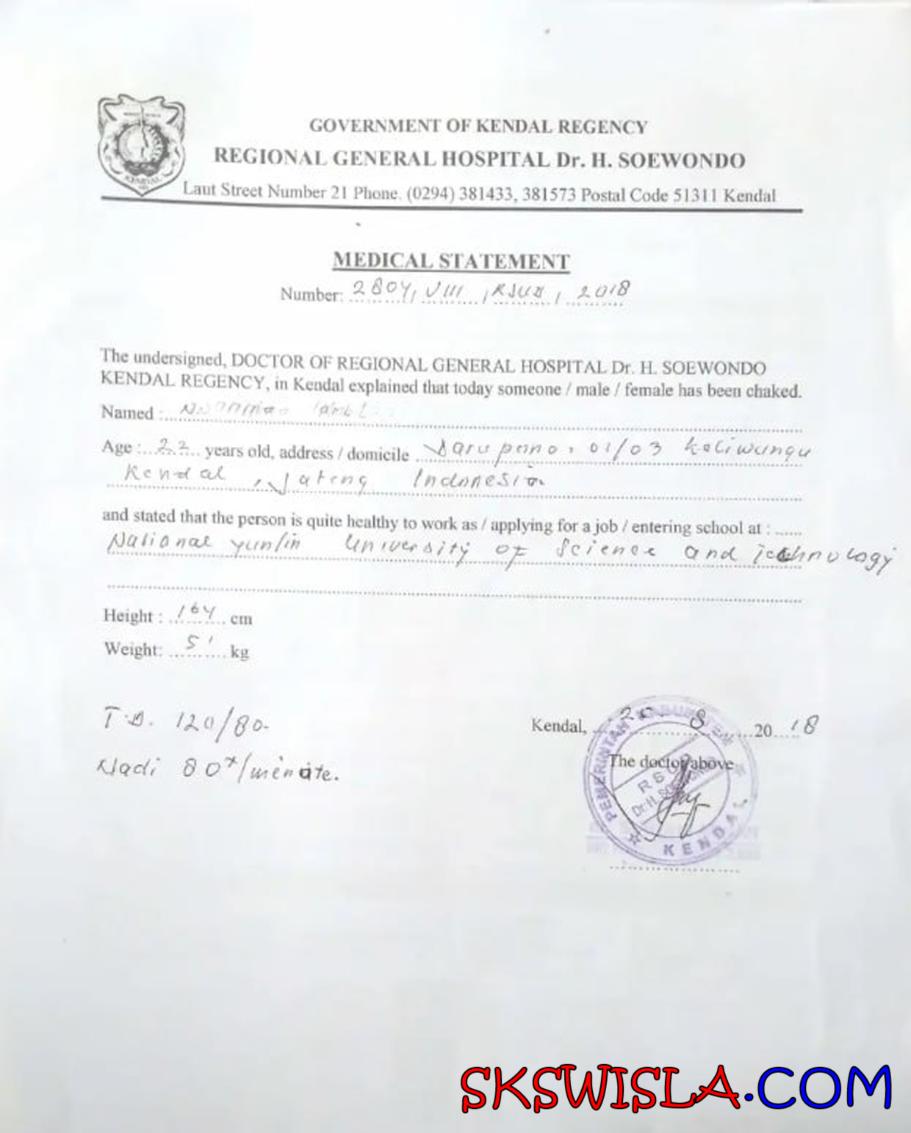 GOVERNMENT OF KENDAL REGENCY
REGIONAL GENERAL HOSPITAL Dr. H. SOEWONDO
Laut Street Number 21 Phone. (0294) 381433, 381573 Postal Code 51311 Kendal
KENDAL
MEDICAL STATEMENT
Number: 2804, VIII, RSUD, 2018
The undersigned, DOCTOR OF REGIONAL GENERAL HOSPITAL Dr. H. SOEWONDO
KENDAL REGENCY, in Kendal explained that today someone / male / female has been chaked.
Named :
Age : 22 years old, address / domicile Darupono, 01/03 Kaliwungu
Kendal, Jateng Indonesia
and stated that the person is quite healthy to work as / applying for a job / entering school at : ......
National yunlin University of Science and technology
Height : 164 cm
Weight: 51 kg
T.D. 120/80.
Nadi 80x/minute.
Kendal, 20 8 2018
The doctor above
PEMERINTAH KABUPATEN
RSUD
Dr.H. SOEWONDO
KENDAL
SKSWISLA.COM